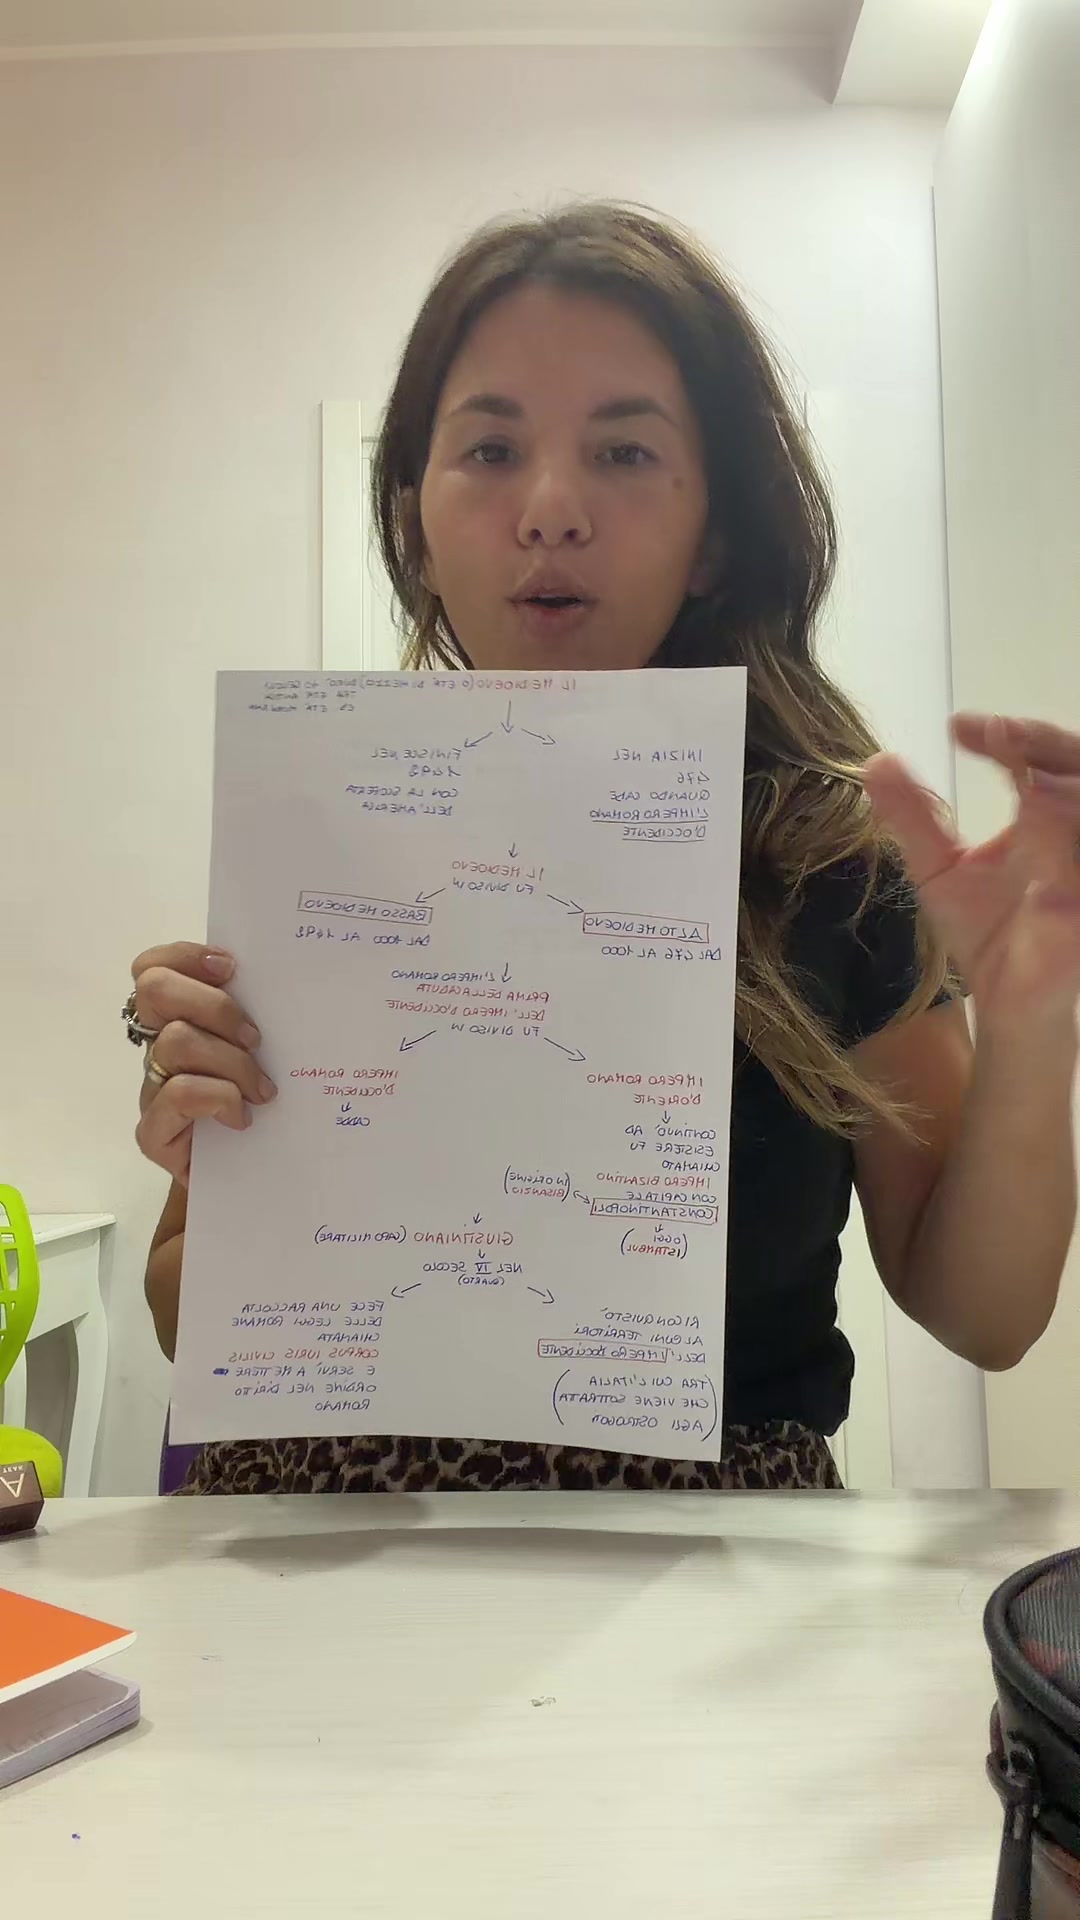 IL MEDIOEVO (O ETA' DI MEZZO) DURO' 10 SECOLI
TRA ETA' ANTICA
ED ETA' MODERNA
INIZIA NEL
476
QUANDO CADE
L'IMPERO ROMANO
D'OCCIDENTE
FINISCE NEL
1492
CON LA SCOPERTA
DELL'AMERICA
IL MEDIOEVO
FU DIVISO IN
ALTO MEDIOEVO
DAL 476 AL 1000
BASSO MEDIOEVO
DAL 1000 AL 1492
L'IMPERO ROMANO
PRIMA DELLA CADUTA
DELL'IMPERO D'OCCIDENTE
FU DIVISO IN
IMPERO ROMANO
D'ORIENTE
CONTINUO' AD
ESISTERE FU
CHIAMATO
IMPERO BIZANTINO
CON CAPITALE
CONSTANTINOPOLI
(IN ORIGINE
BISANZIO)
(OGGI
ISTANBUL)
IMPERO ROMANO
D'OCCIDENTE
CADDE
GIUSTINIANO (CAPO MILITARE)
NEL IV SECOLO
(QUARTO)
RICONQUISTO'
ALCUNI TERRITORI
DELL'IMPERO D'OCCIDENTE
(TRA CUI L'ITALIA
CHE VIENE SOTTRATTA
AGLI OSTROGOTI)
FECE UNA RACCOLTA
DELLE LEGGI ROMANE
CHIAMATA
CORPUS IURIS CIVILIS
E SERVI' A METTERE
ORDINE NEL DIRITTO
ROMANO